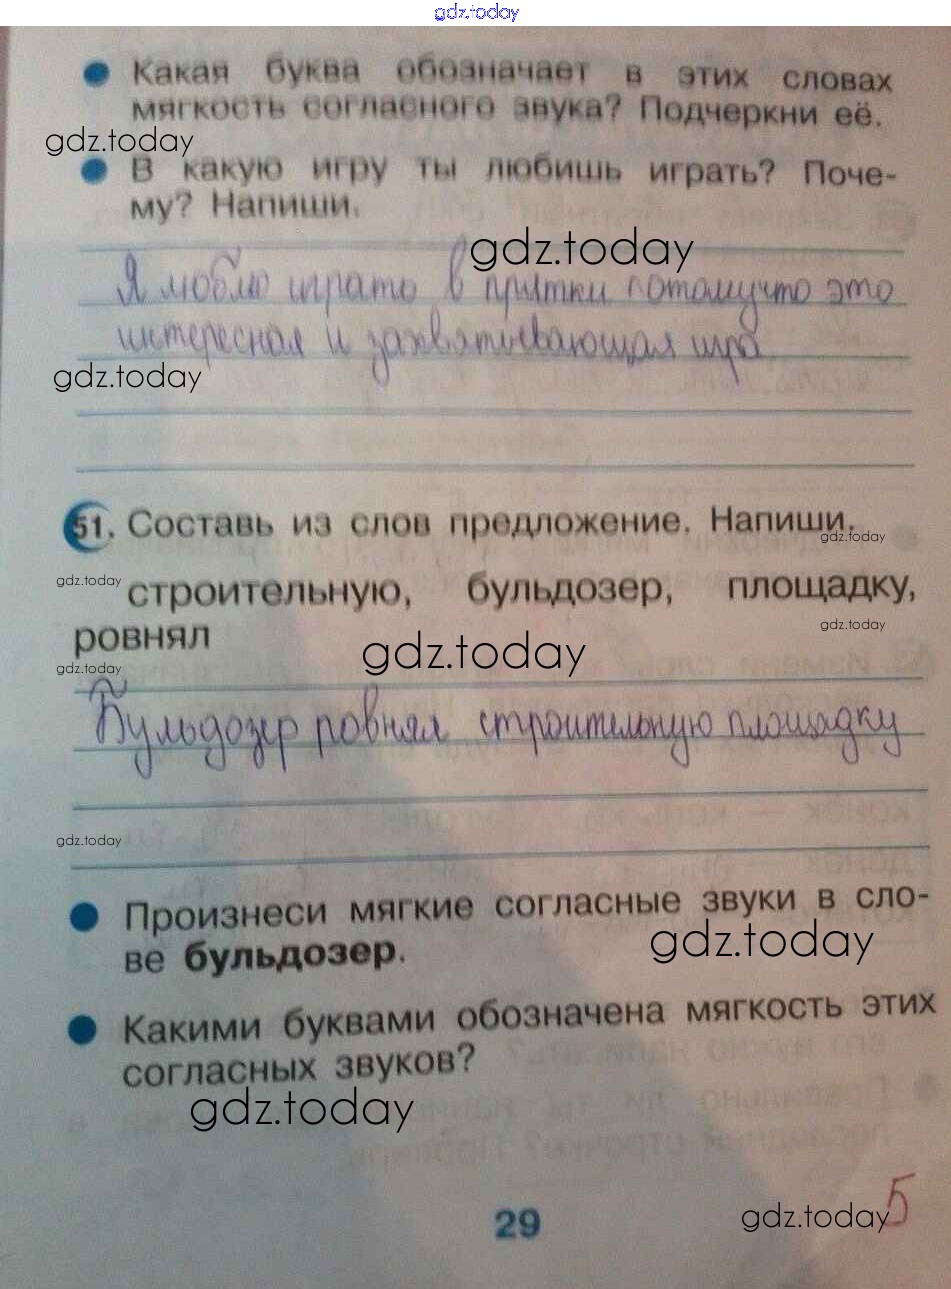 gdz.today
Какая буква обозначает в этих словах
мягкость согласного звука? Подчеркни её.
gdz.today
В какую игру ты любишь играть? Поче-
му? Напиши.
gdz.today
Я люблю играть в прятки потомучто это
интересная и захватывающая игра
gdz.today
51. Составь из слов предложение. Напиши.
gdz.today
gdz.today
строительную, бульдозер, площадку,
gdz.today
ровнял
gdz.today
gdz.today
Бульдозер ровнял строительную площадку
gdz.today
Произнеси мягкие согласные звуки в сло-
ве бульдозер.
gdz.today
Какими буквами обозначена мягкость этих
согласных звуков?
gdz.today
5
29
gdz.today